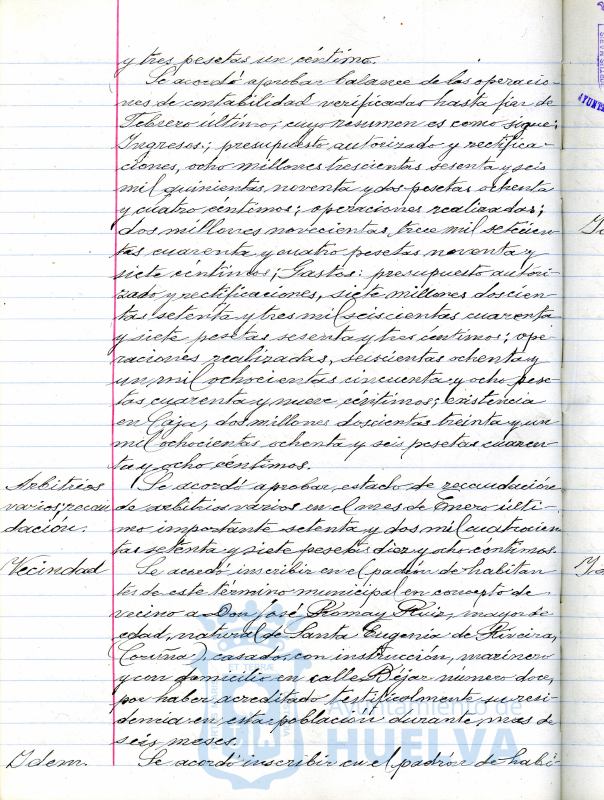 y tres pesetas un céntimo.
Se acordó aprobar balance de las operacio-
nes de contabilidad verificadas hasta fin de
Febrero último, cuyo resumen es como sigue:
Ingresos: presupuesto autorizado y rectifica-
ciones, ocho millones trescientas sesenta y seis
mil quinientas noventa y dos pesetas ochenta
y cuatro céntimos; operaciones realizadas;
dos millones novecientas trece mil setecien-
tas cuarenta y cuatro pesetas noventa y
siete centimos; Gastos: presupuesto autori-
zado y rectificaciones, siete millones doscien-
tas setenta y tres mil seiscientas cuarenta
y siete pesetas sesenta y tres céntimos; ope-
raciones realizadas, seiscientas ochenta y
un mil ochocientas cincuenta y ocho pese-
tas cuarenta y nueve céntimos; existencia
en Caja, dos millones doscientas treinta y un
mil ochocientas ochenta y seis pesetas cuaren-
ta y ocho céntimos.
Arbitrios
varios; recau
dación.
Se acordó aprobar estado de recaudación
de arbitrios varios en el mes de Enero últi-
mo importante setenta y dos mil cuatrocien-
tas setenta y siete pesetas diez y ocho céntimos.
Vecindad
Se acordó inscribir en el padrón de habitan-
tes de este término municipal en concepto de
vecino a Don José Romay Ruiz, mayor de
edad, natural de Santa Eugenia de Riveira
(Coruña), casado, con instrucción, marinero
y con domicilio en calle Béjar número doce,
por haber acreditado testificalmente su resi-
dencia en esta población durante mas de
seis meses.
Idem.
Se acordó inscribir en el padrón de habi-
Ayuntamiento de
HUELVA